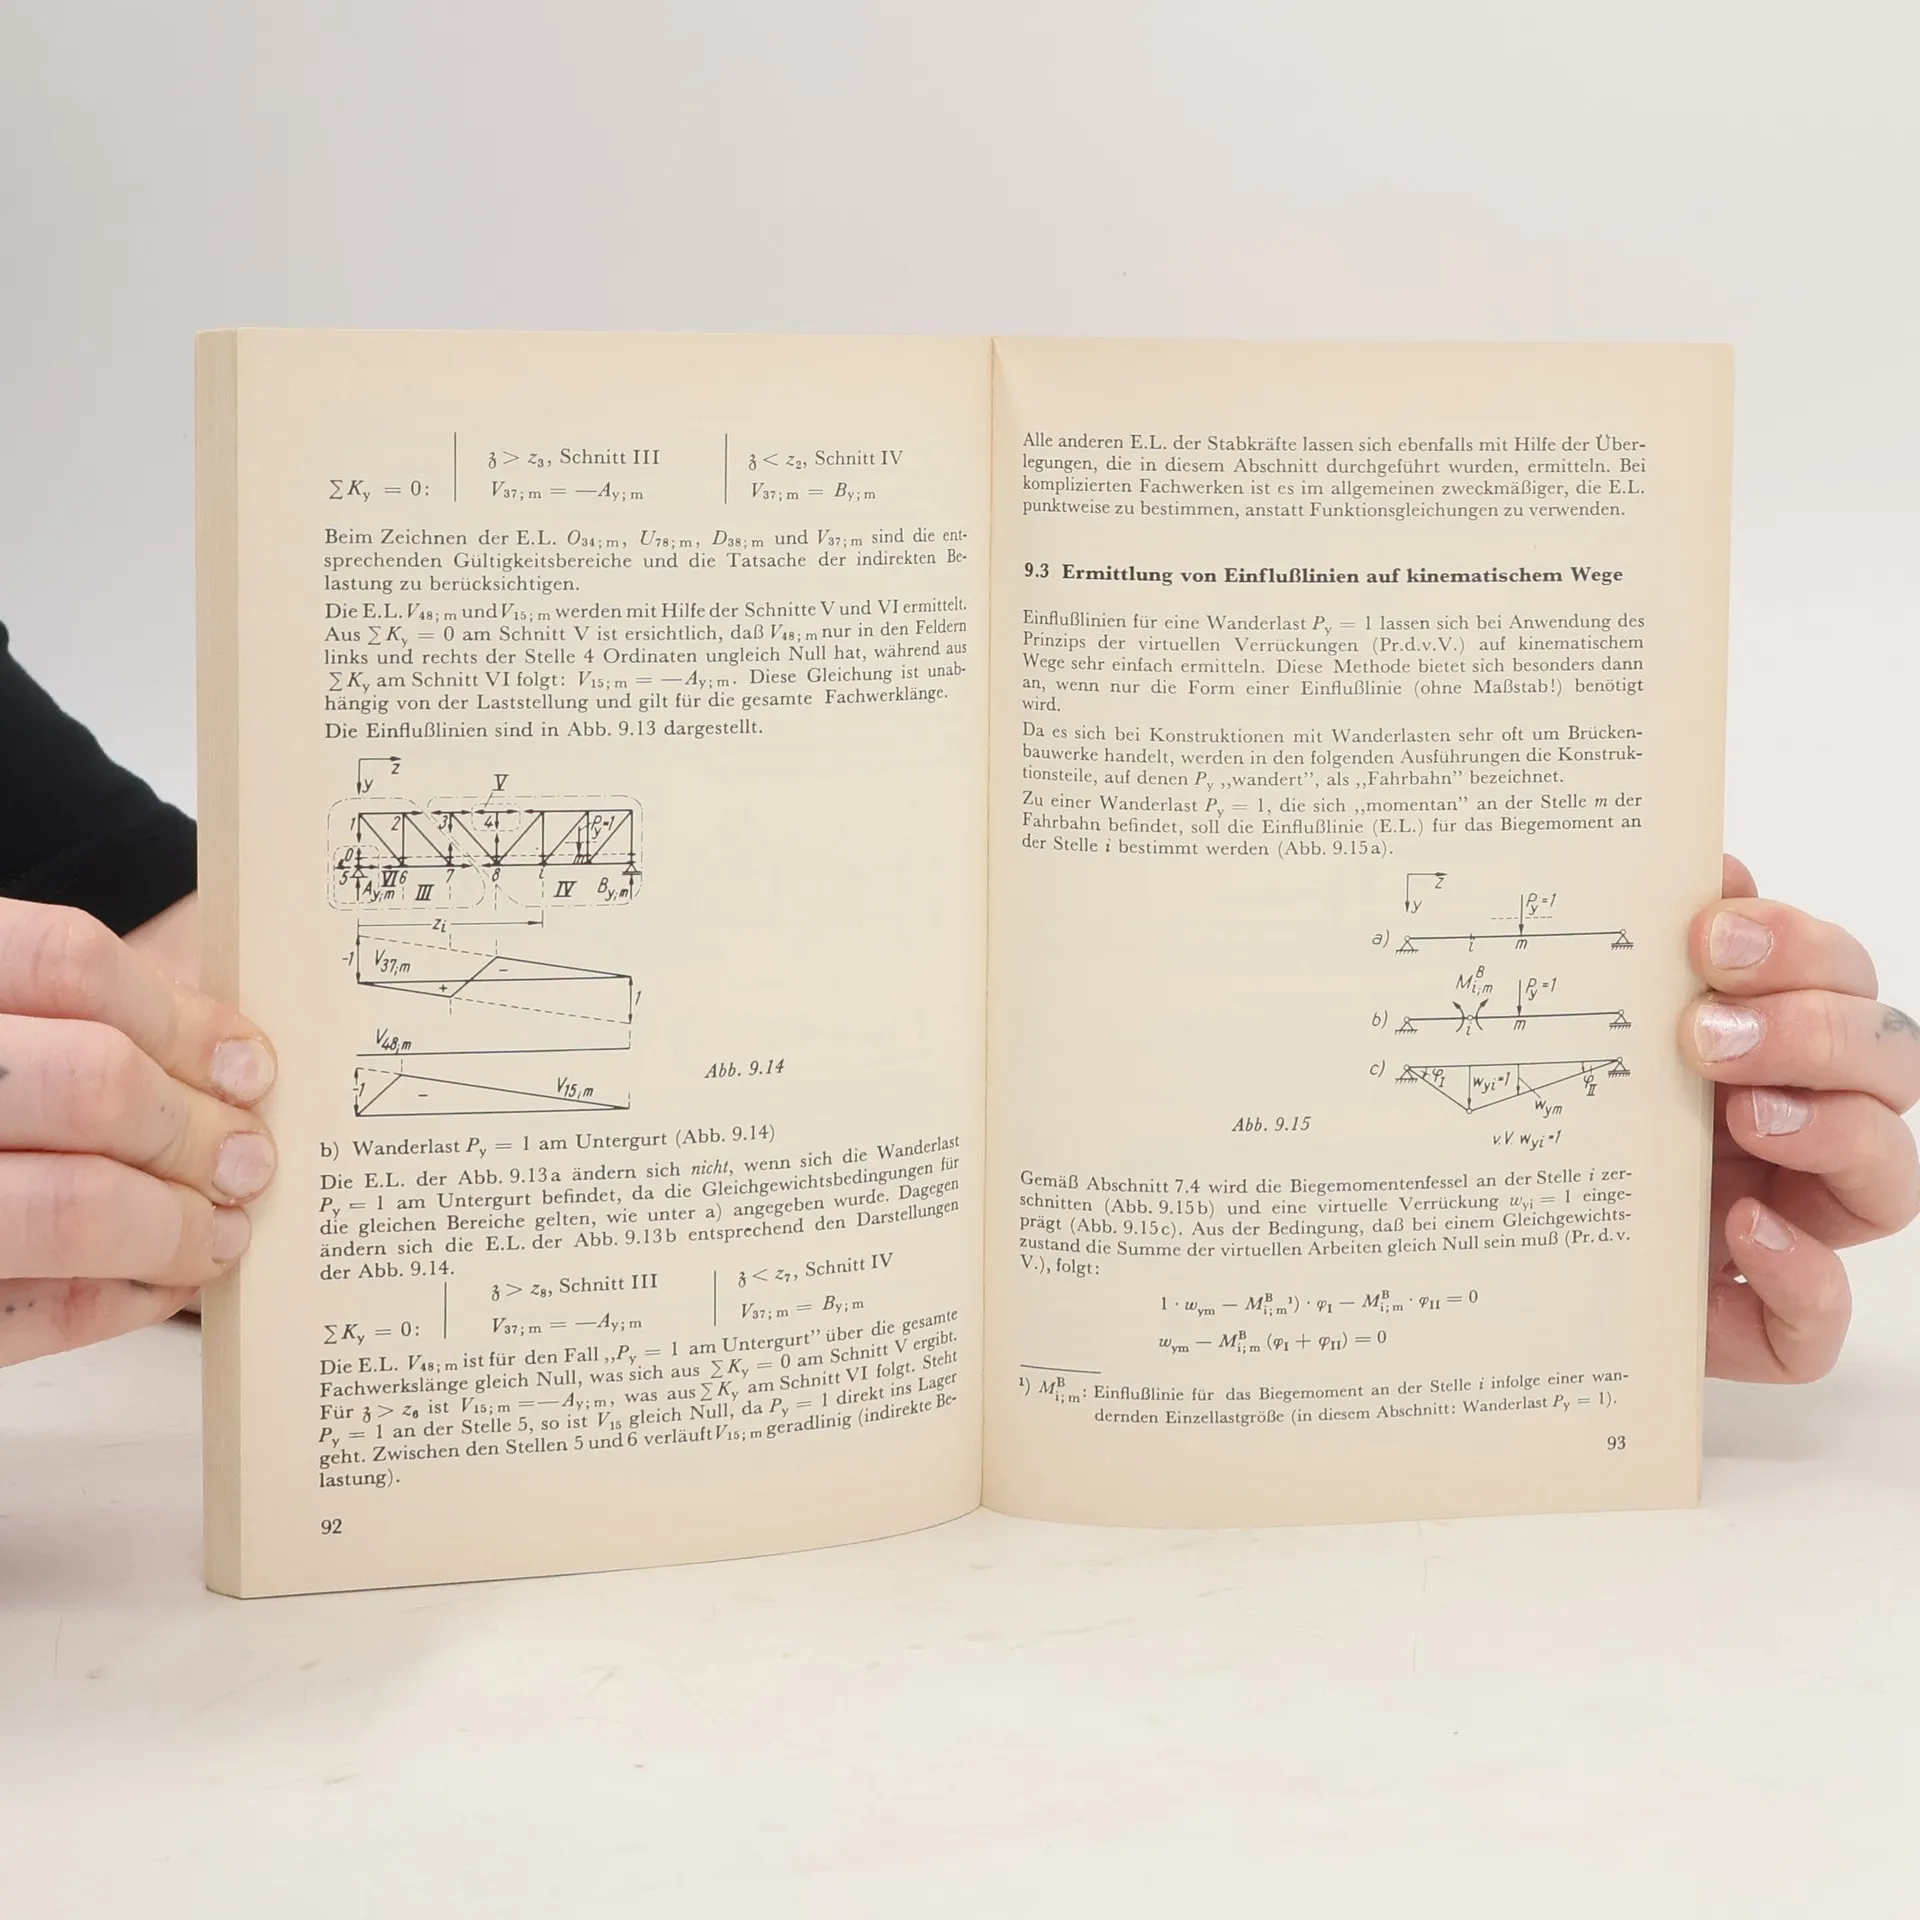 𝔷 > z₃, Schnitt III | 𝔷 < z₂, Schnitt IV
∑Ky = 0: | V37; m = —Ay; m | V37; m = By; m
Beim Zeichnen der E.L. O34; m, U78; m, D38; m und V37; m sind die ent-
sprechenden Gültigkeitsbereiche und die Tatsache der indirekten Be-
lastung zu berücksichtigen.
Die E.L. V48; m und V15; m werden mit Hilfe der Schnitte V und VI ermittelt.
Aus ∑Ky = 0 am Schnitt V ist ersichtlich, daß V48; m nur in den Feldern
links und rechts der Stelle 4 Ordinaten ungleich Null hat, während aus
∑Ky am Schnitt VI folgt: V15; m = —Ay; m. Diese Gleichung ist unab-
hängig von der Laststellung und gilt für die gesamte Fachwerklänge.
Die Einflußlinien sind in Abb. 9.13 dargestellt.
z
y
V
1 2 3 4 Py=1
0 m
5 VI 6 7 8 i
Ay;m III IV By;m
zi
-1 V37;m
−
+
1
V48;m
-1
− V15;m
Abb. 9.14
b) Wanderlast Py = 1 am Untergurt (Abb. 9.14)
Die E.L. der Abb. 9.13a ändern sich nicht, wenn sich die Wanderlast
Py = 1 am Untergurt befindet, da die Gleichgewichtsbedingungen für
die gleichen Bereiche gelten, wie unter a) angegeben wurde. Dagegen
ändern sich die E.L. der Abb. 9.13b entsprechend den Darstellungen
der Abb. 9.14.
𝔷 > z₈, Schnitt III | 𝔷 < z₇, Schnitt IV
∑Ky = 0: | V37; m = —Ay; m | V37; m = By; m
Die E.L. V48; m ist für den Fall „Py = 1 am Untergurt” über die gesamte
Fachwerkslänge gleich Null, was sich aus ∑Ky = 0 am Schnitt V ergibt.
Für 𝔷 > z₆ ist V15; m = —Ay; m, was aus ∑Ky am Schnitt VI folgt. Steht
Py = 1 an der Stelle 5, so ist V15 gleich Null, da Py = 1 direkt ins Lager
geht. Zwischen den Stellen 5 und 6 verläuft V15; m geradlinig (indirekte Be-
lastung).
92
Alle anderen E.L. der Stabkräfte lassen sich ebenfalls mit Hilfe der Über-
legungen, die in diesem Abschnitt durchgeführt wurden, ermitteln. Bei
komplizierten Fachwerken ist es im allgemeinen zweckmäßiger, die E.L.
punktweise zu bestimmen, anstatt Funktionsgleichungen zu verwenden.
9.3 Ermittlung von Einflußlinien auf kinematischem Wege
Einflußlinien für eine Wanderlast Py = 1 lassen sich bei Anwendung des
Prinzips der virtuellen Verrückungen (Pr.d.v.V.) auf kinematischem
Wege sehr einfach ermitteln. Diese Methode bietet sich besonders dann
an, wenn nur die Form einer Einflußlinie (ohne Maßstab!) benötigt
wird.
Da es sich bei Konstruktionen mit Wanderlasten sehr oft um Brücken-
bauwerke handelt, werden in den folgenden Ausführungen die Konstruk-
tionsteile, auf denen Py „wandert”, als „Fahrbahn” bezeichnet.
Zu einer Wanderlast Py = 1, die sich „momentan” an der Stelle m der
Fahrbahn befindet, soll die Einflußlinie (E.L.) für das Biegemoment an
der Stelle i bestimmt werden (Abb. 9.15a).
z
y Py=1
a) i m
M^B i;m Py=1
b) i m
c) φI wyi=1 φII
wym
Abb. 9.15
v.V. wyi=1
Gemäß Abschnitt 7.4 wird die Biegemomentenfessel an der Stelle i zer-
schnitten (Abb. 9.15b) und eine virtuelle Verrückung wyi = 1 einge-
prägt (Abb. 9.15c). Aus der Bedingung, daß bei einem Gleichgewichts-
zustand die Summe der virtuellen Arbeiten gleich Null sein muß (Pr. d. v.
V.), folgt:
1 · wym — M^B i; m ¹) · φI — M^B i; m · φII = 0
wym — M^B i; m (φI + φII) = 0
¹) M^B i; m: Einflußlinie für das Biegemoment an der Stelle i infolge einer wan-
dernden Einzellastgröße (in diesem Abschnitt: Wanderlast Py = 1).
93